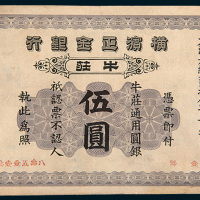 橫濱正金銀行
牛莊
憑票即付
牛莊通用圓銀
伍圓
祇認票不認人
執此為照